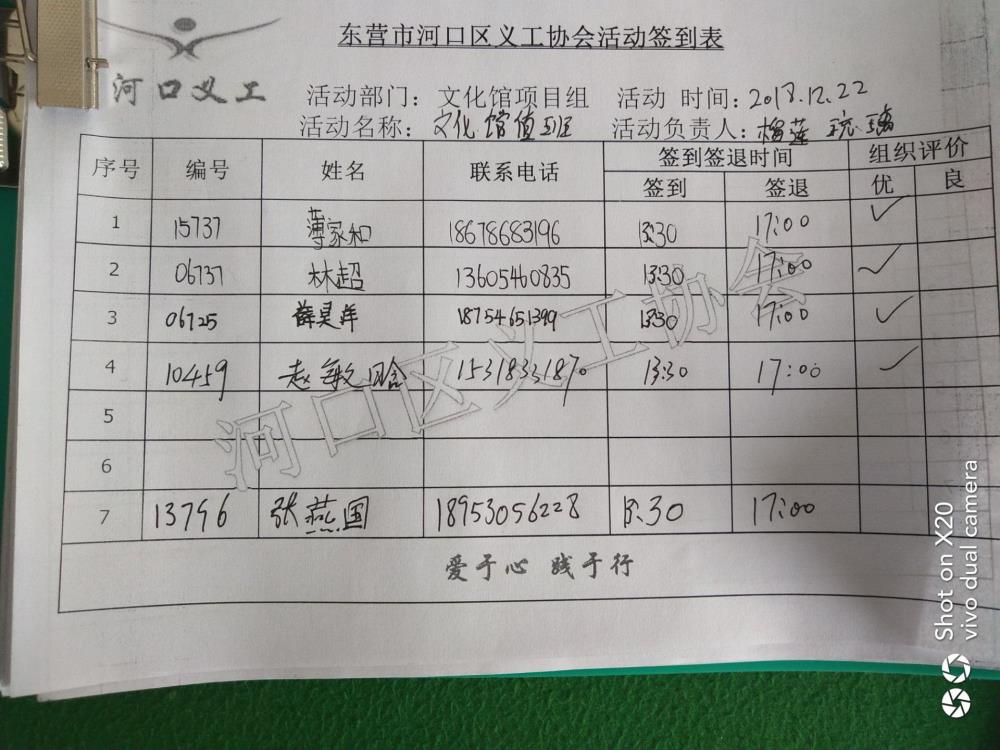 东营市河口区义工协会活动签到表
河口义工
活动部门：文化馆项目组 活动 时间：2018.12.22
活动名称：文化馆值班 活动负责人：
序号 编号 姓名 联系电话 签到签退时间 组织评价
签到 签退 优 良
1 15737 薄家和 18678683196 13:30 17:00 ✓
2 06737 林超 13605460835 13:30 17:00 ✓
3 06725 薛昊洋 18754651399 13:30 17:00 ✓
4 10459 赵敏晗 15318331870 13:30 17:00 ✓
5
6
7 13796 张燕国 18953056228 13:30 17:00
爱于心 践于行
河口区义工协会
Shot on X20
vivo dual camera